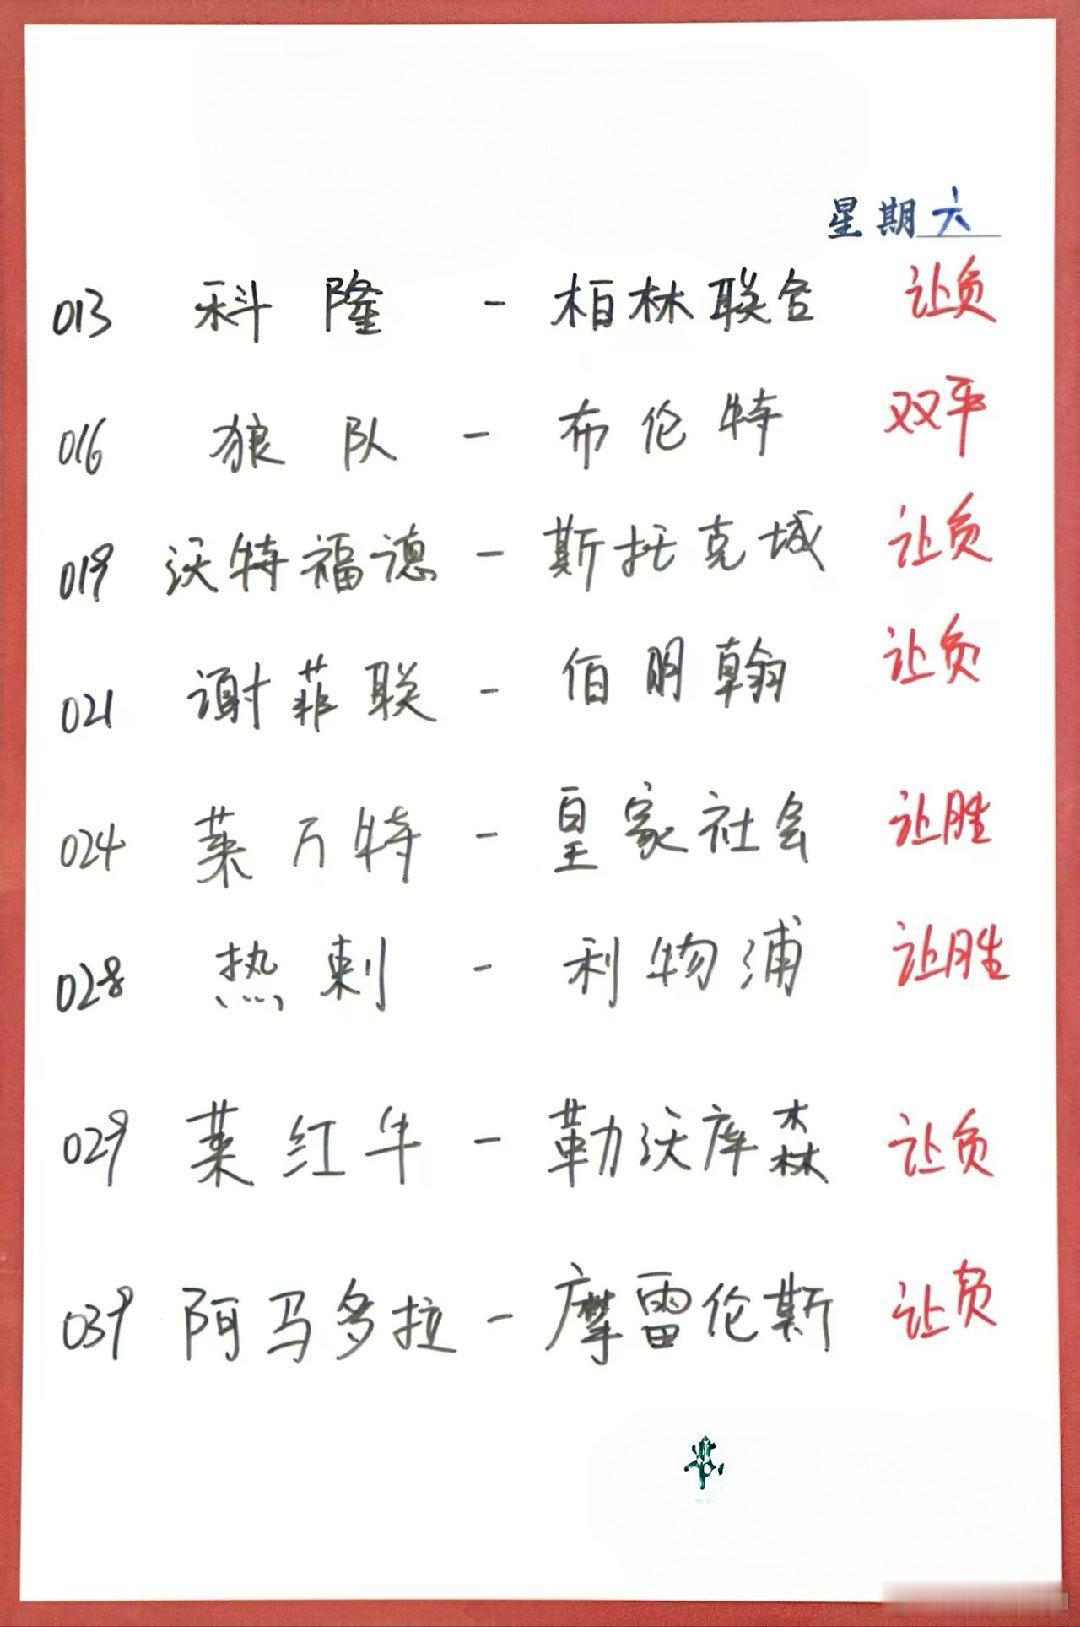 星期六
013 科隆 - 柏林联合 让负
016 狼队 - 布伦特 双平
019 沃特福德 - 斯托克城 让负
021 谢菲联 - 伯明翰 让负
024 莱万特 - 皇家社会 让胜
028 热刺 - 利物浦 让胜
029 莱红牛 - 勒沃库森 让负
039 阿马多拉 - 摩雷伦斯 让负